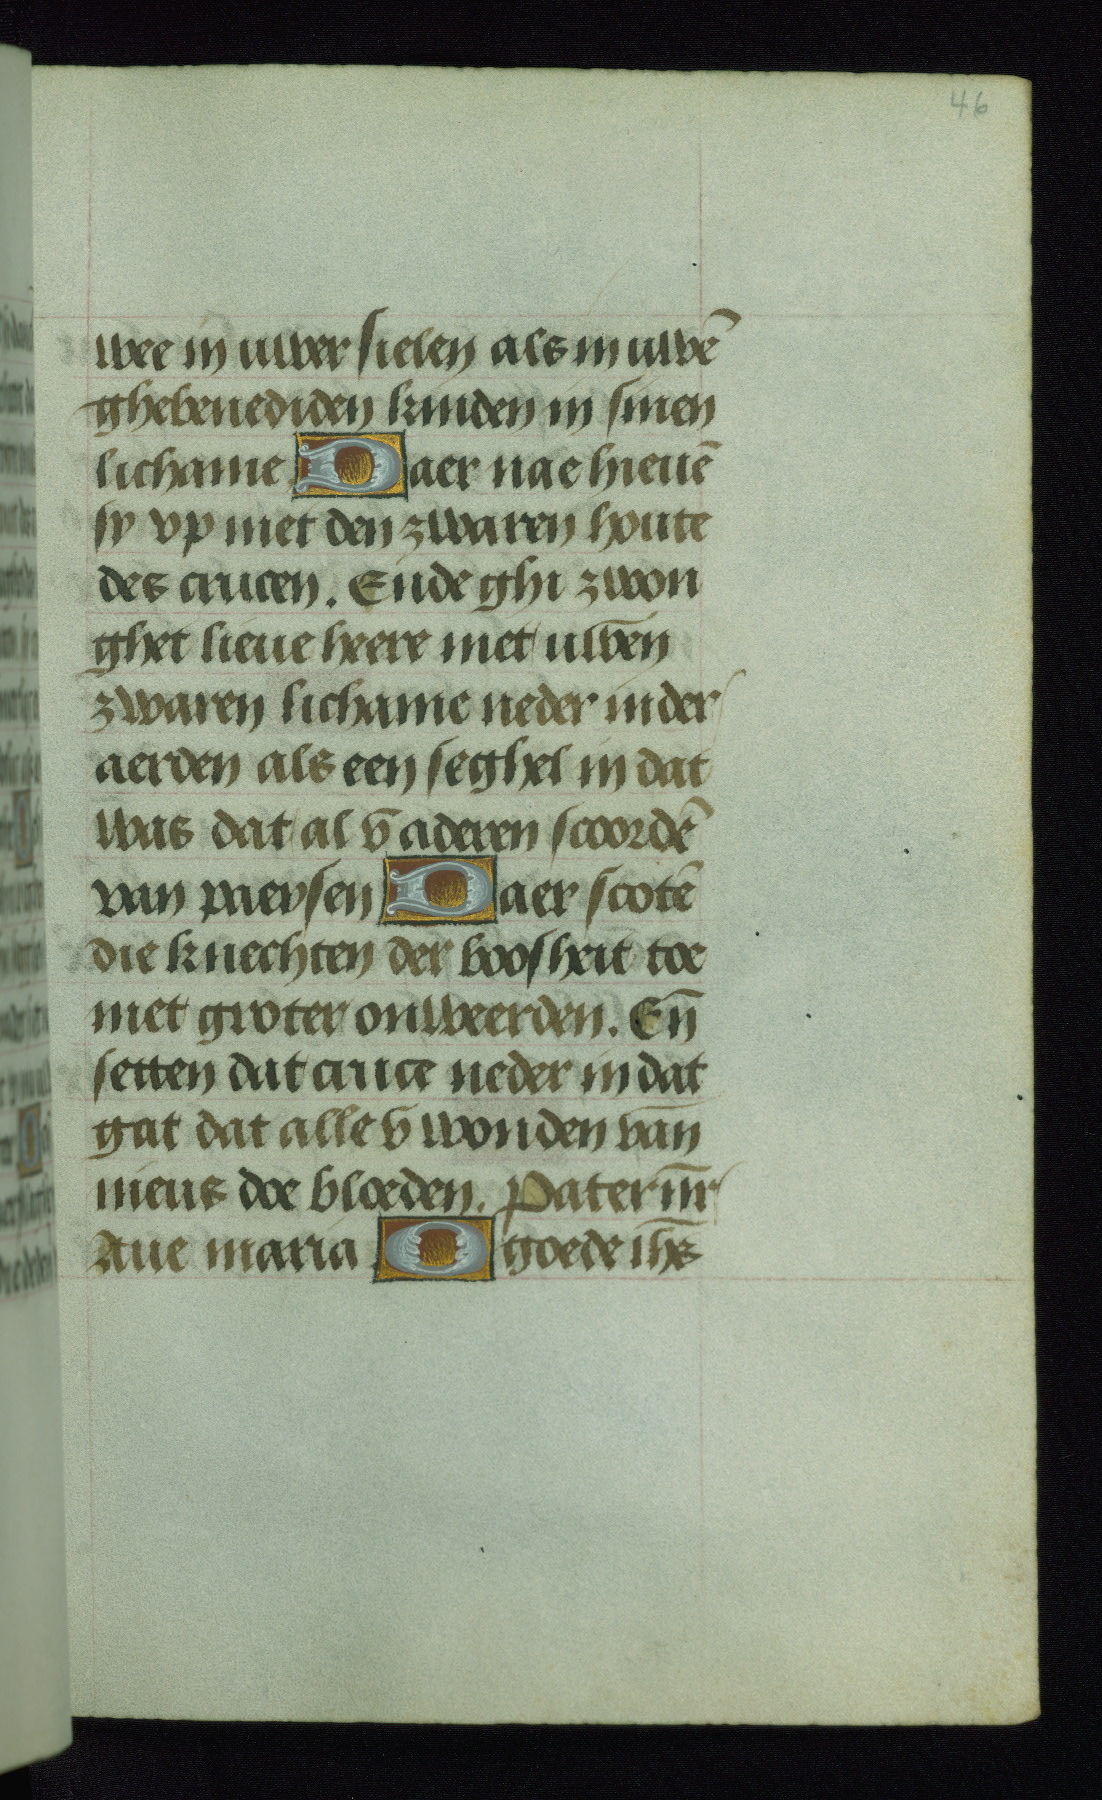 46
wee in uwer sielen als in uwē
ghebenediden kinden in sinen
lichame Daer nae hieuē
sy vp met den zwaren houte
des crucen. Ende ghi zwon
ghet lieue heere met uwen
zwaren lichame neder in der
aerden als een seghel in dat
was dat al v̄ aderen scoordē
van paeysen Daer scotē
die knechten der boosheit toe
met groter onweerden. En̄
setten dat cruce neder in dat
gat dat alle v̄ wonden van
nieus doe bloeden. Pater n̄r
Aue maria O goede ih̄s